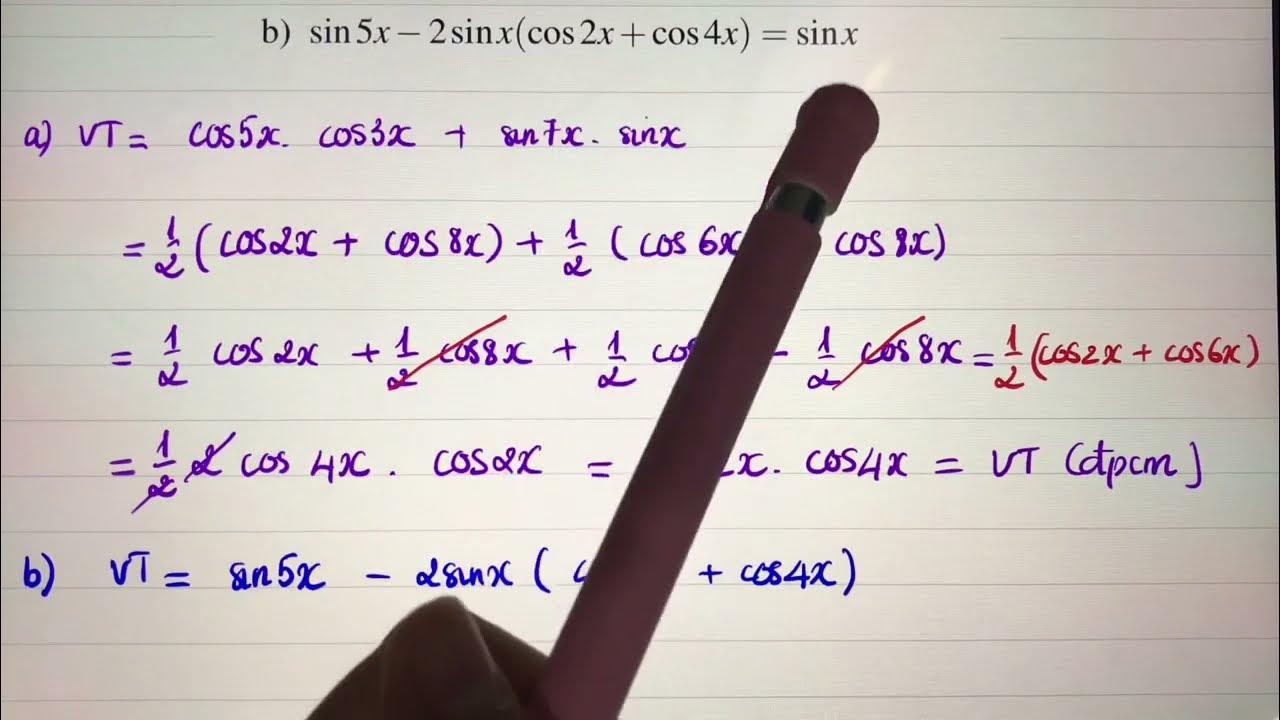 b) sin 5x − 2 sin x(cos 2x + cos 4x) = sin x
a) VT = cos5x. cos3x + sin7x. sinx
= 1/2 (cos2x + cos8x) + 1/2 (cos6x cos8x)
= 1/2 cos2x + 1/2 cos8x + 1/2 - 1/2 cos8x = 1/2 (cos2x + cos6x)
= 1/2 2 cos 4x . cos2x = x. cos4x = VT (đpcm)
b) VT = sin5x - 2sinx ( + cos4x)